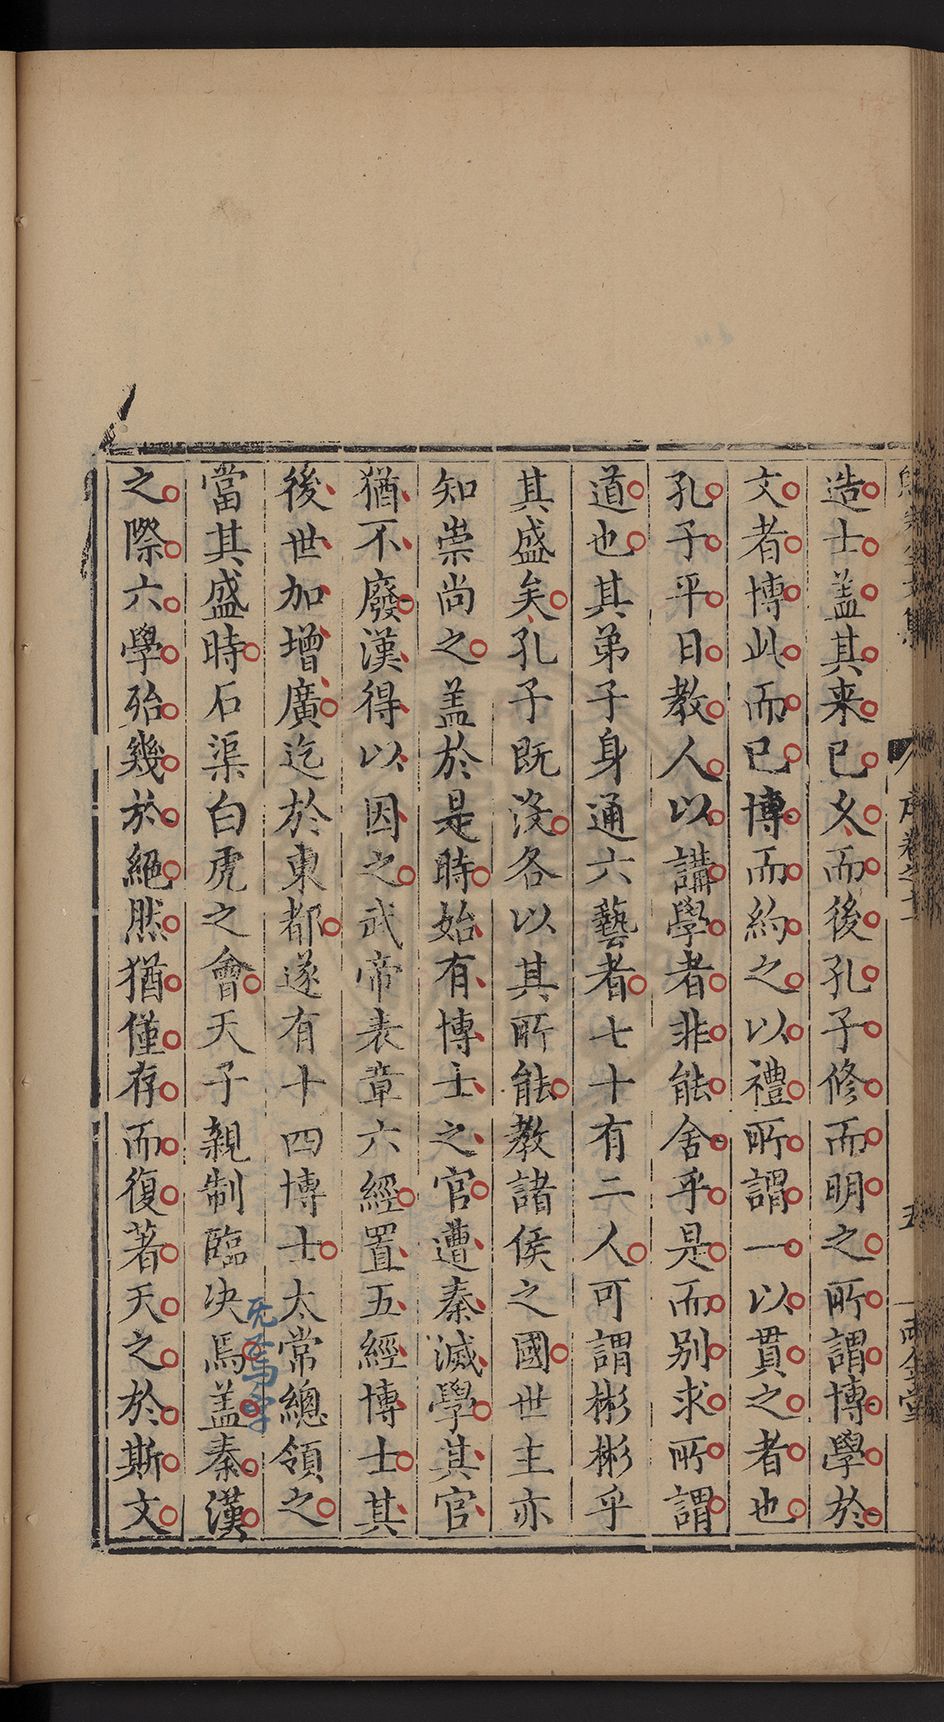 造士盖其来已久而後孔子修而明之所謂博學於
文者博此而已博而約之以禮所謂一以貫之者也
孔子平日教人以講學者非能舍乎是而别求所謂
道也其弟子身通六藝者七十有二人可謂彬彬乎
其盛矣孔子既沒各以其所能教諸侯之國世主亦
知崇尚之盖於是時始有博士之官遭秦滅學其官
猶不廢漢得以因之武帝表章六經置五經博士其
後世加增廣迄於東都遂有十四博士太常總領之
當其盛時石渠白虎之會天子親制臨决焉盖秦漢
之際六學殆幾於絕然猶僅存而復著天之於斯文